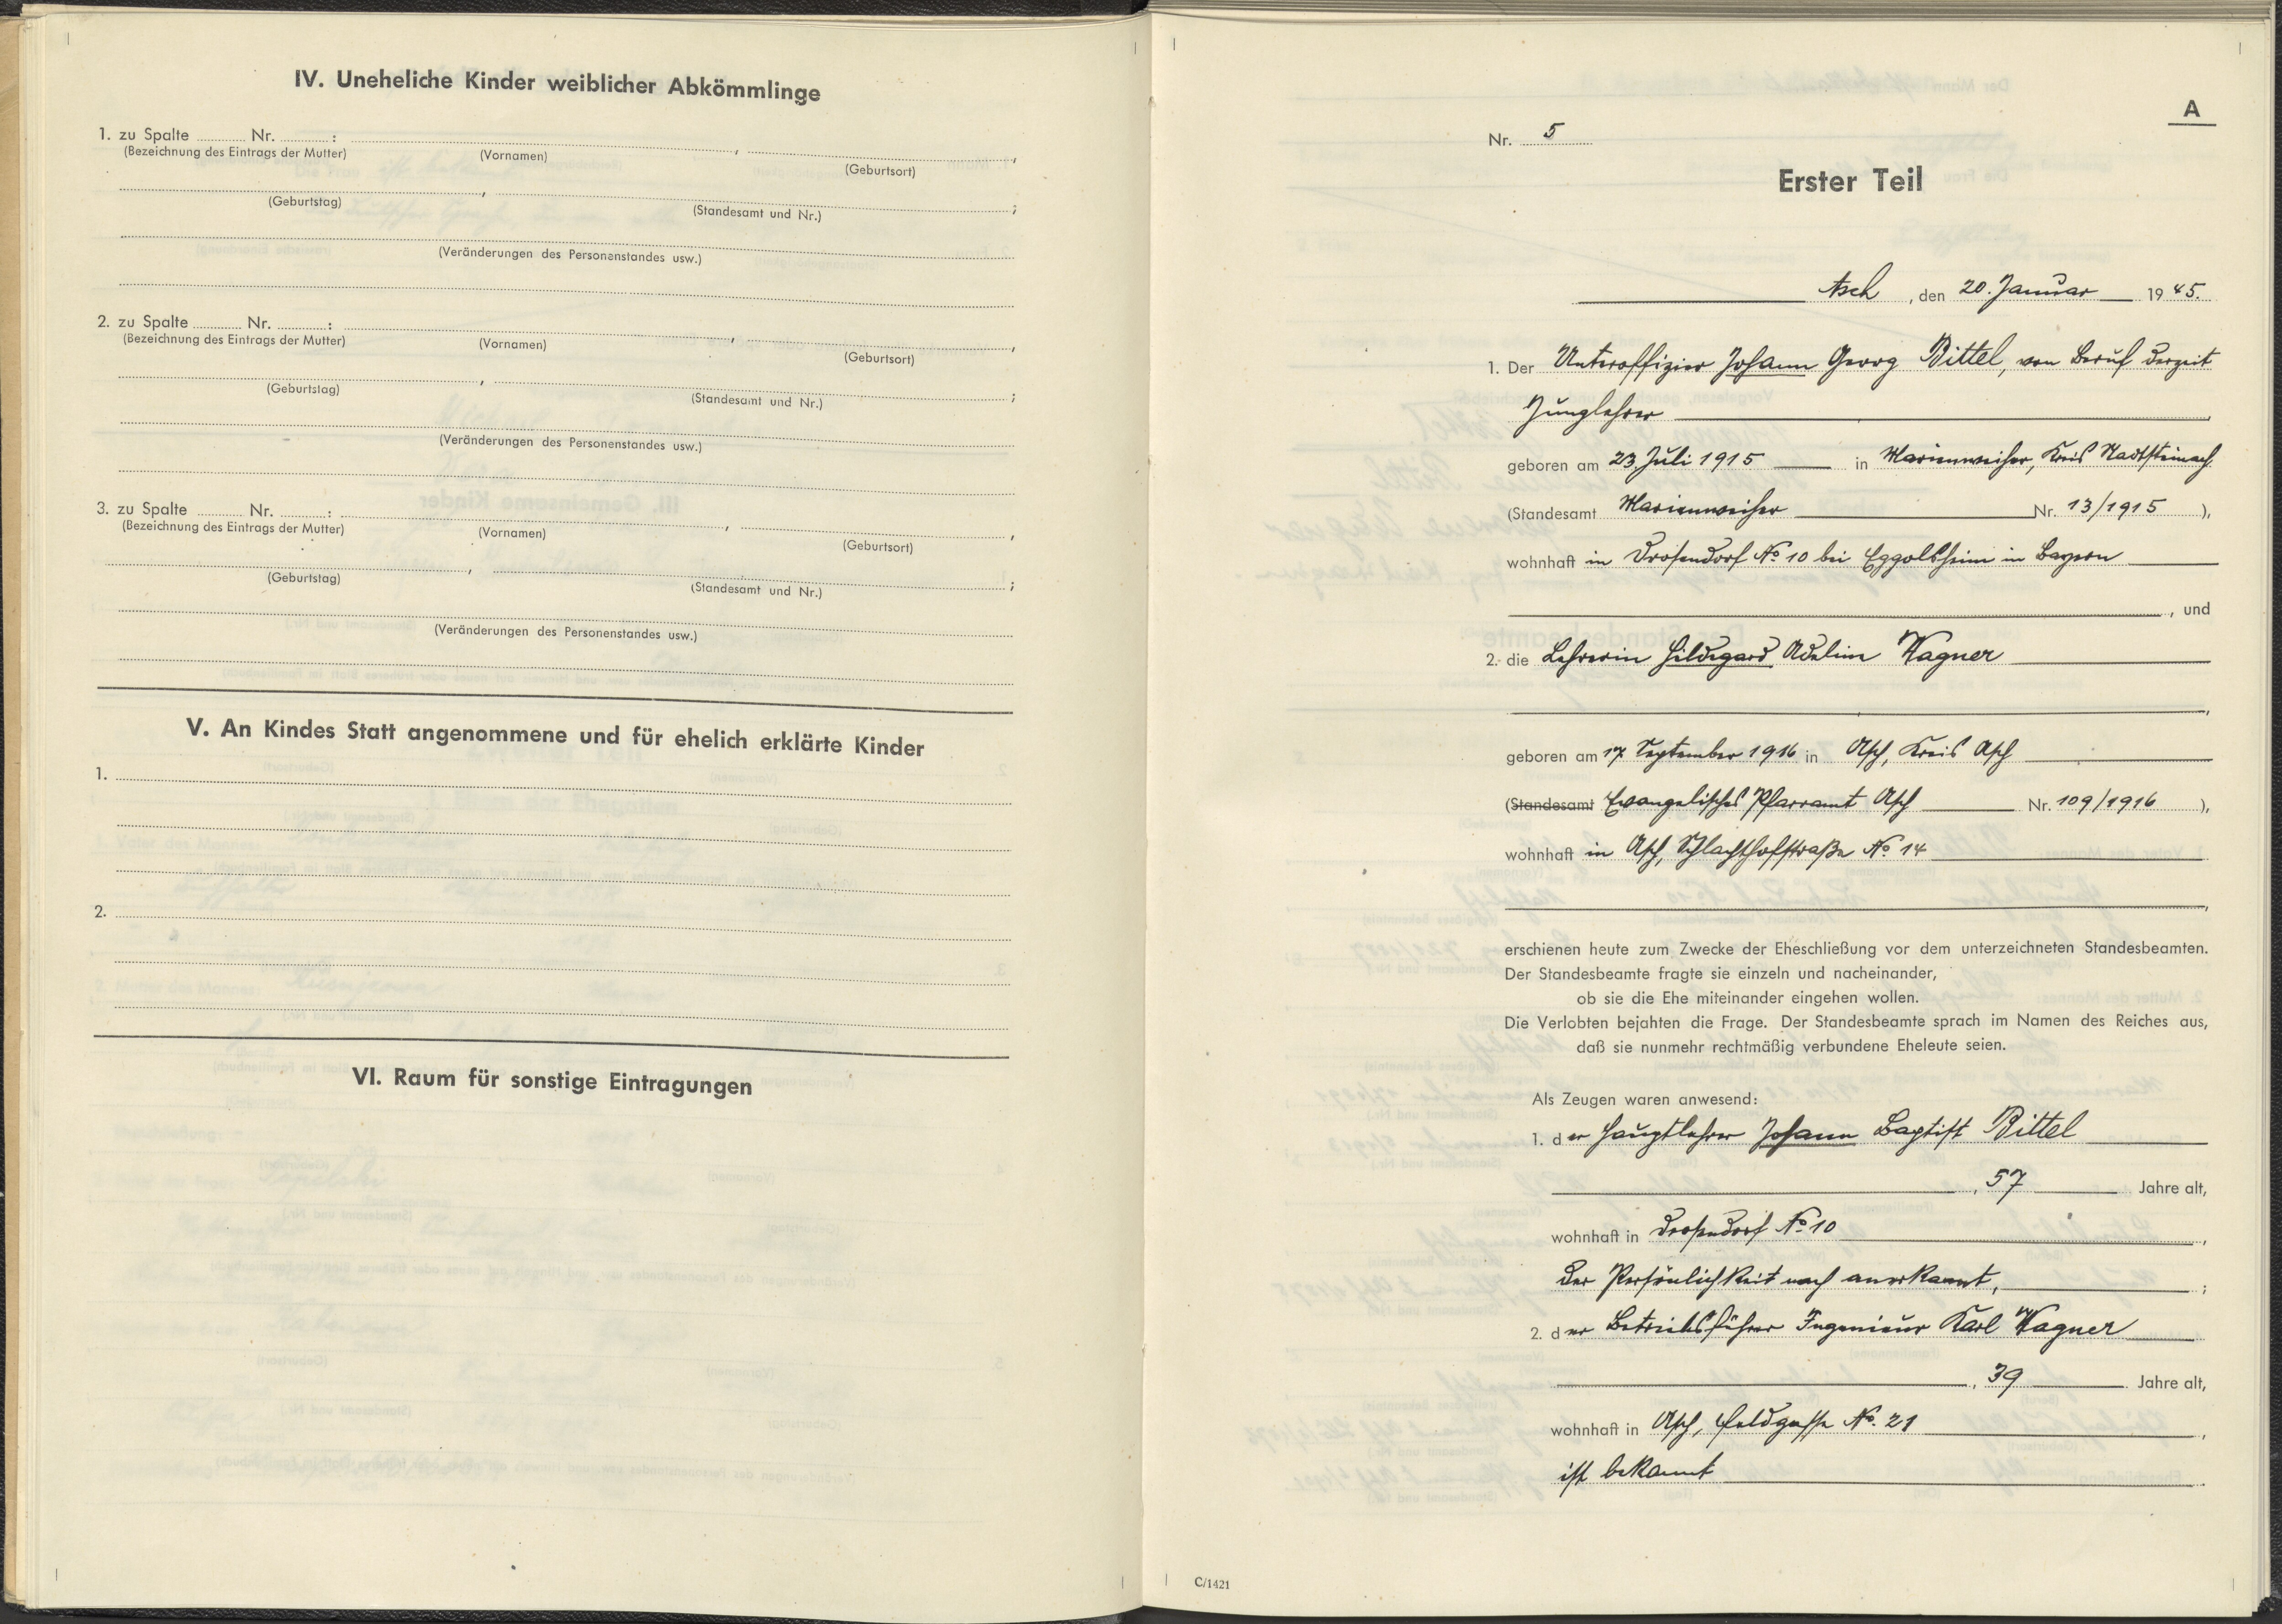 IV. Uneheliche Kinder weiblicher Abkömmlinge
1. zu Spalte ........ Nr. ........ :
(Bezeichnung des Eintrags der Mutter) (Vornamen) (Geburtsort)
(Geburtstag) (Standesamt und Nr.)
(Veränderungen des Personenstandes usw.)
2. zu Spalte ........ Nr. ........ :
(Bezeichnung des Eintrags der Mutter) (Vornamen) (Geburtsort)
(Geburtstag) (Standesamt und Nr.)
(Veränderungen des Personenstandes usw.)
3. zu Spalte ........ Nr. ........ :
(Bezeichnung des Eintrags der Mutter) (Vornamen) (Geburtsort)
(Geburtstag) (Standesamt und Nr.)
(Veränderungen des Personenstandes usw.)
V. An Kindes Statt angenommene und für ehelich erklärte Kinder
1.
2.
VI. Raum für sonstige Eintragungen
A
Nr. 5
Erster Teil
Asch, den 20. Januar 1945.
1. Der Unteroffizier Johann Georg Bittel, von Beruf derzeit
Junglehrer
geboren am 23. Juli 1915 in Marienweiher, Kreis Stadtsteinach
(Standesamt Marienweiher Nr. 13/1915 ),
wohnhaft in Drosendorf No 10 bei Eggolsheim in Bayern
, und
2. die Lehrerin Hildegard Adeline Wagner
geboren am 17. September 1916 in Asch, Kreis Asch
(Standesamt Evangelisches Pfarramt Asch Nr. 109/1916 ),
wohnhaft in Asch, Schlachthofstraße No. 14
erschienen heute zum Zwecke der Eheschließung vor dem unterzeichneten Standesbeamten.
Der Standesbeamte fragte sie einzeln und nacheinander,
ob sie die Ehe miteinander eingehen wollen.
Die Verlobten bejahten die Frage. Der Standesbeamte sprach im Namen des Reiches aus,
daß sie nunmehr rechtmäßig verbundene Eheleute seien.
Als Zeugen waren anwesend:
1. der Hauptlehrer Johann Baptist Bittel
, 57 Jahre alt,
wohnhaft in Drosendorf No 10,
der Persönlichkeit nach anerkannt, ;
2. der Betriebsführer Ingenieur Karl Wagner
, 39 Jahre alt,
wohnhaft in Asch, Feldgasse No. 21,
ist bekannt
C/1421